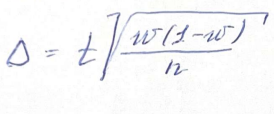 Δ = t √(w(1-w)/n)